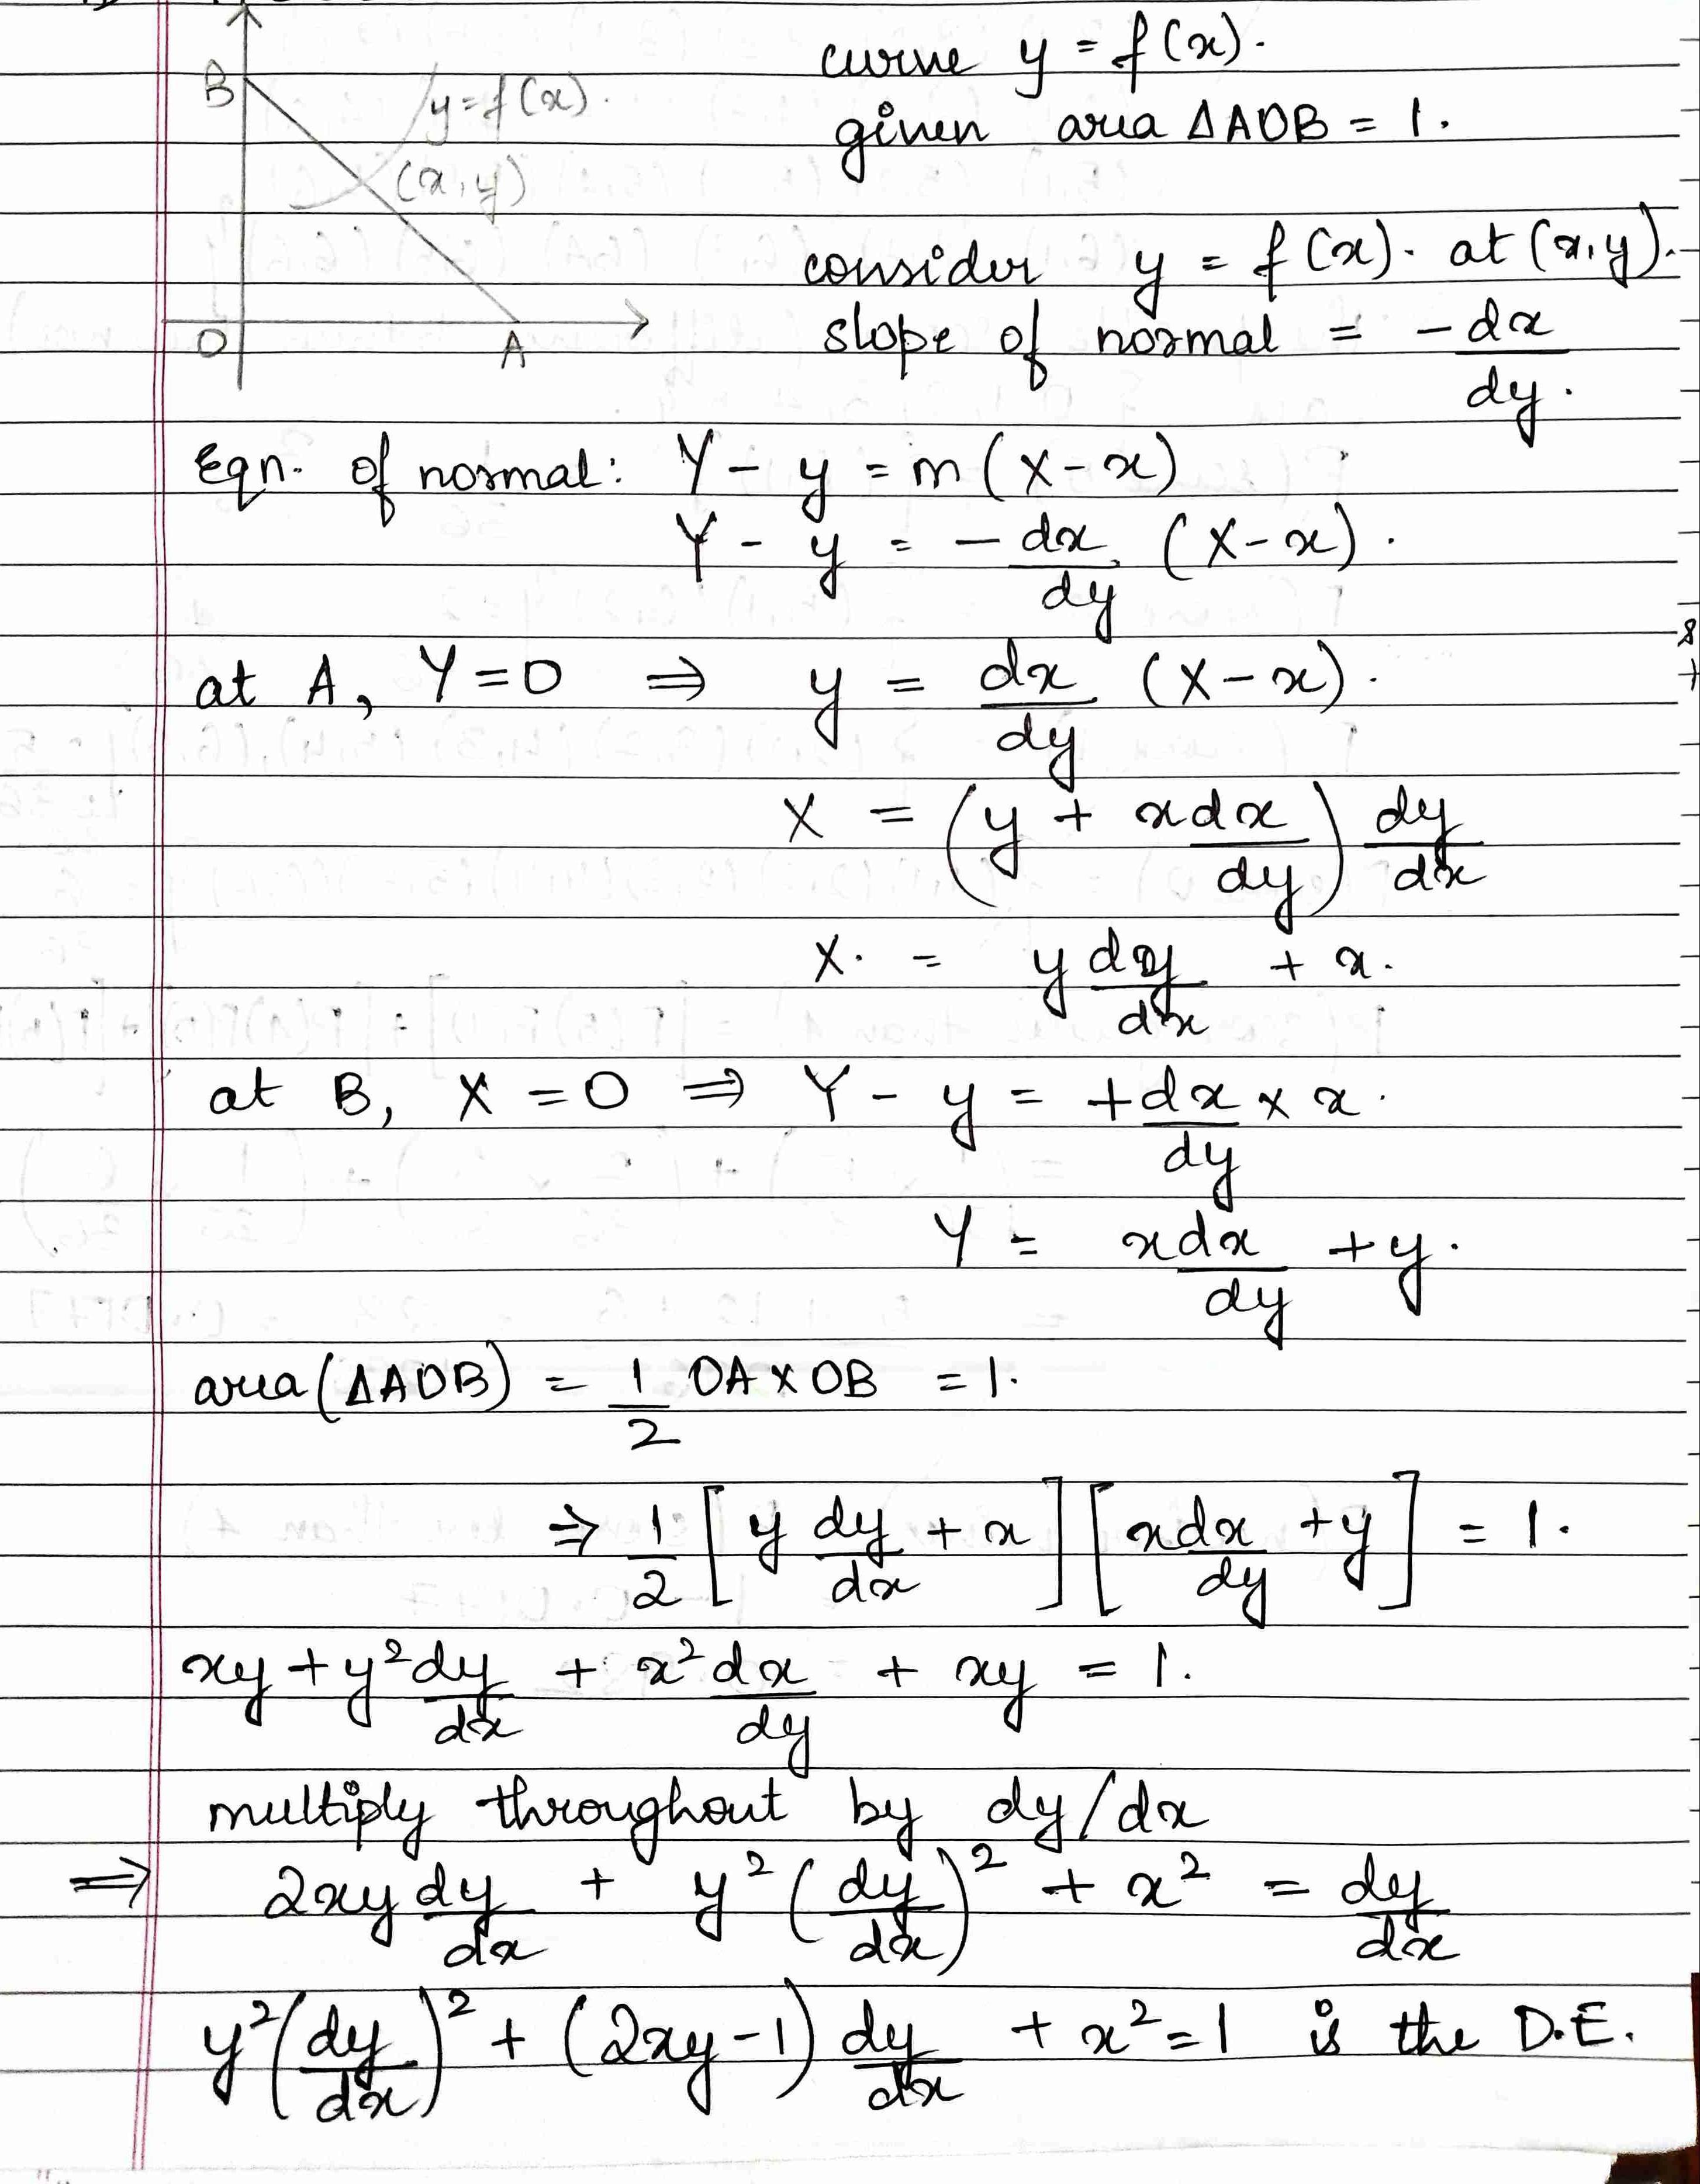 B
y = f(x).
(x, y)
O
A
curve y = f(x).
given area ΔAOB = 1.
consider y = f(x). at (x, y).
slope of normal = -dx/dy.
Eqn. of normal: Y - y = m(X - x)
Y - y = -dx/dy (X - x).
at A, Y = 0 ⇒ y = dx/dy (X - x).
X = (y + x dx/dy) dy/dx
X. = y dy/dx + x.
at B, X = 0 ⇒ Y - y = + dx/dy × x.
Y = x dx/dy + y.
area (ΔAOB) = 1/2 OA × OB = 1.
⇒ 1/2 [y dy/dx + x] [x dx/dy + y] = 1.
xy + y² dy/dx + x² dx/dy + xy = 1.
multiply throughout by dy/dx
⇒ 2xy dy/dx + y² (dy/dx)² + x² = dy/dx
y² (dy/dx)² + (2xy - 1) dy/dx + x² = 1 is the D.E.